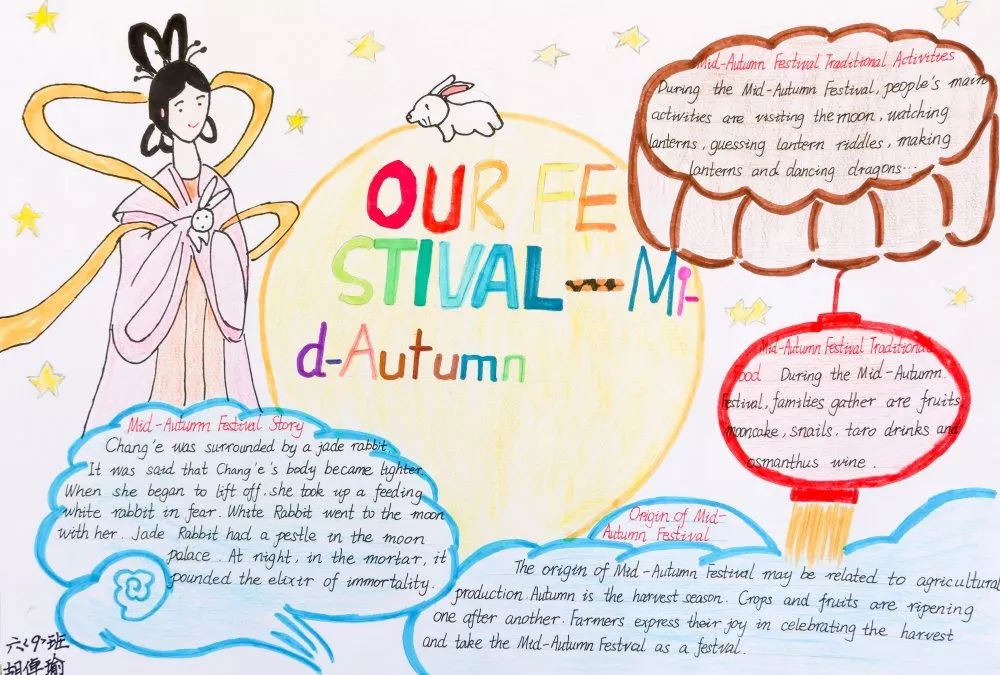 OUR FE
STIVAL---Mi-
d-Autumn
Mid-Autumn Festival Traditional Activities
During the Mid-Autumn Festival, people's main
activities are visiting the moon, watching
lanterns, guessing lantern riddles, making
lanterns and dancing dragons...
Mid-Autumn Festival Traditional
Food During the Mid-Autumn
Festival, families gather are fruits
mooncake, snails, taro drinks and
osmanthus wine.
Mid-Autumn Festival Story
Chang'e was surrounded by a jade rabbit.
It was said that Chang'e's body became lighter.
When she began to lift off, she took up a feeding
white rabbit in fear. White Rabbit went to the moon
with her. Jade Rabbit had a pestle in the moon
palace. At night, in the mortar, it
pounded the elixir of immortality.
Origin of Mid-
Autumn Festival
The origin of Mid-Autumn Festival may be related to agricultural
production Autumn is the harvest season. Crops and fruits are ripening
one after another. Farmers express their joy in celebrating the harvest
and take the Mid-Autumn Festval as a festval.
六<9>班
胡倬瑜